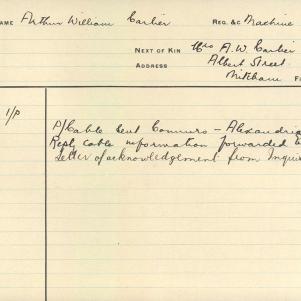 NAME Arthur William Carlier REG. &C Machine
NEXT OF KIN Mrs A.W. Carlier
ADDRESS Albert Street
Mitcham
1/P
P/Cable sent Commrs - Alexandria
Reply cable information forwarded
Letter of acknowledgement from Inqui